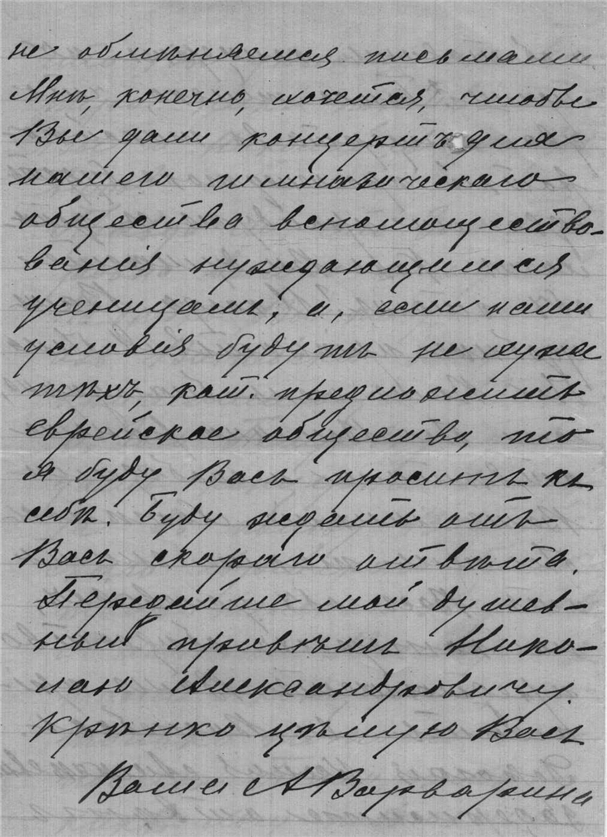 не обмѣняемся письмами
Мнѣ, конечно, хочется, чтобы
Вы дали концертъ для
нашего гимназическаго
общества вспомощество-
ванія нуждающимся
ученицамъ, а, если наши
условія будутъ не хуже
тѣхъ, кот. предложитъ
еврейское общество, то
я буду Васъ просить къ
себѣ. Буду ждать отъ
Васъ скораго отвѣта.
Передайте мой душев-
ный привѣтъ Нико-
лаю Александровичу
Крѣпко цѣлую Васъ
Ваша А Варварина